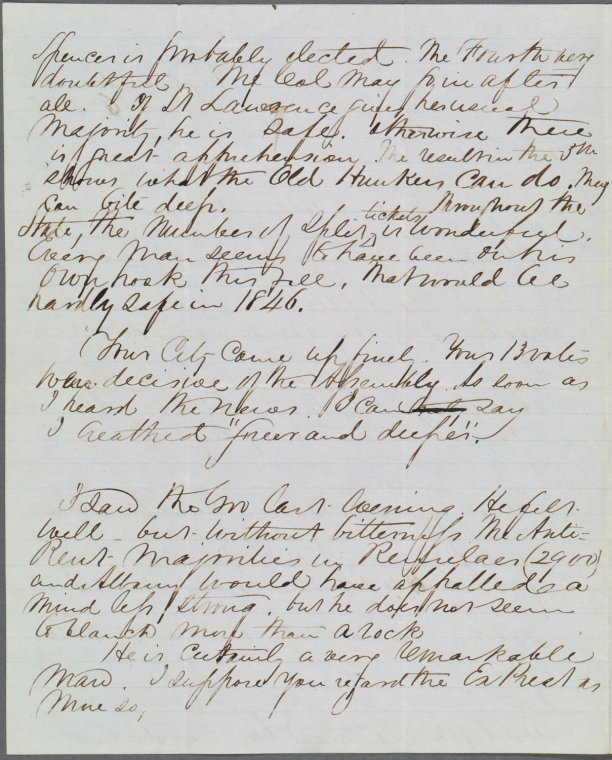 Spencer is probably elected. The Fourth very
doubtful. The Col may join after
all. If St Lawrence gives her usual
Majority, he is safe. Otherwise there
is great apprehension. The result in the 5th
shows what the Old Hunkers can do. They
can bite deep. Throughout the
State, the number of Split tickets is wonderful.
Every man seems to have been on his
own hook this fall. That would be
hardly safe in 1846.
Your City came up finely. Your 13 votes
were decisive of the Assembly. As soon as
I heard the news. I can say
I breathed "freer and deeper".
I saw the Gov last evening. He felt
well - but without bitterness. The Anti-
Rent Majorities in Rensselaer (2900)
and Albany would have appalled a
mind less strong, but he does not seem
to blanch more than a rock
He is certainly a very remarkable
Man. I suppose you regard the Ex Prest as
More so,